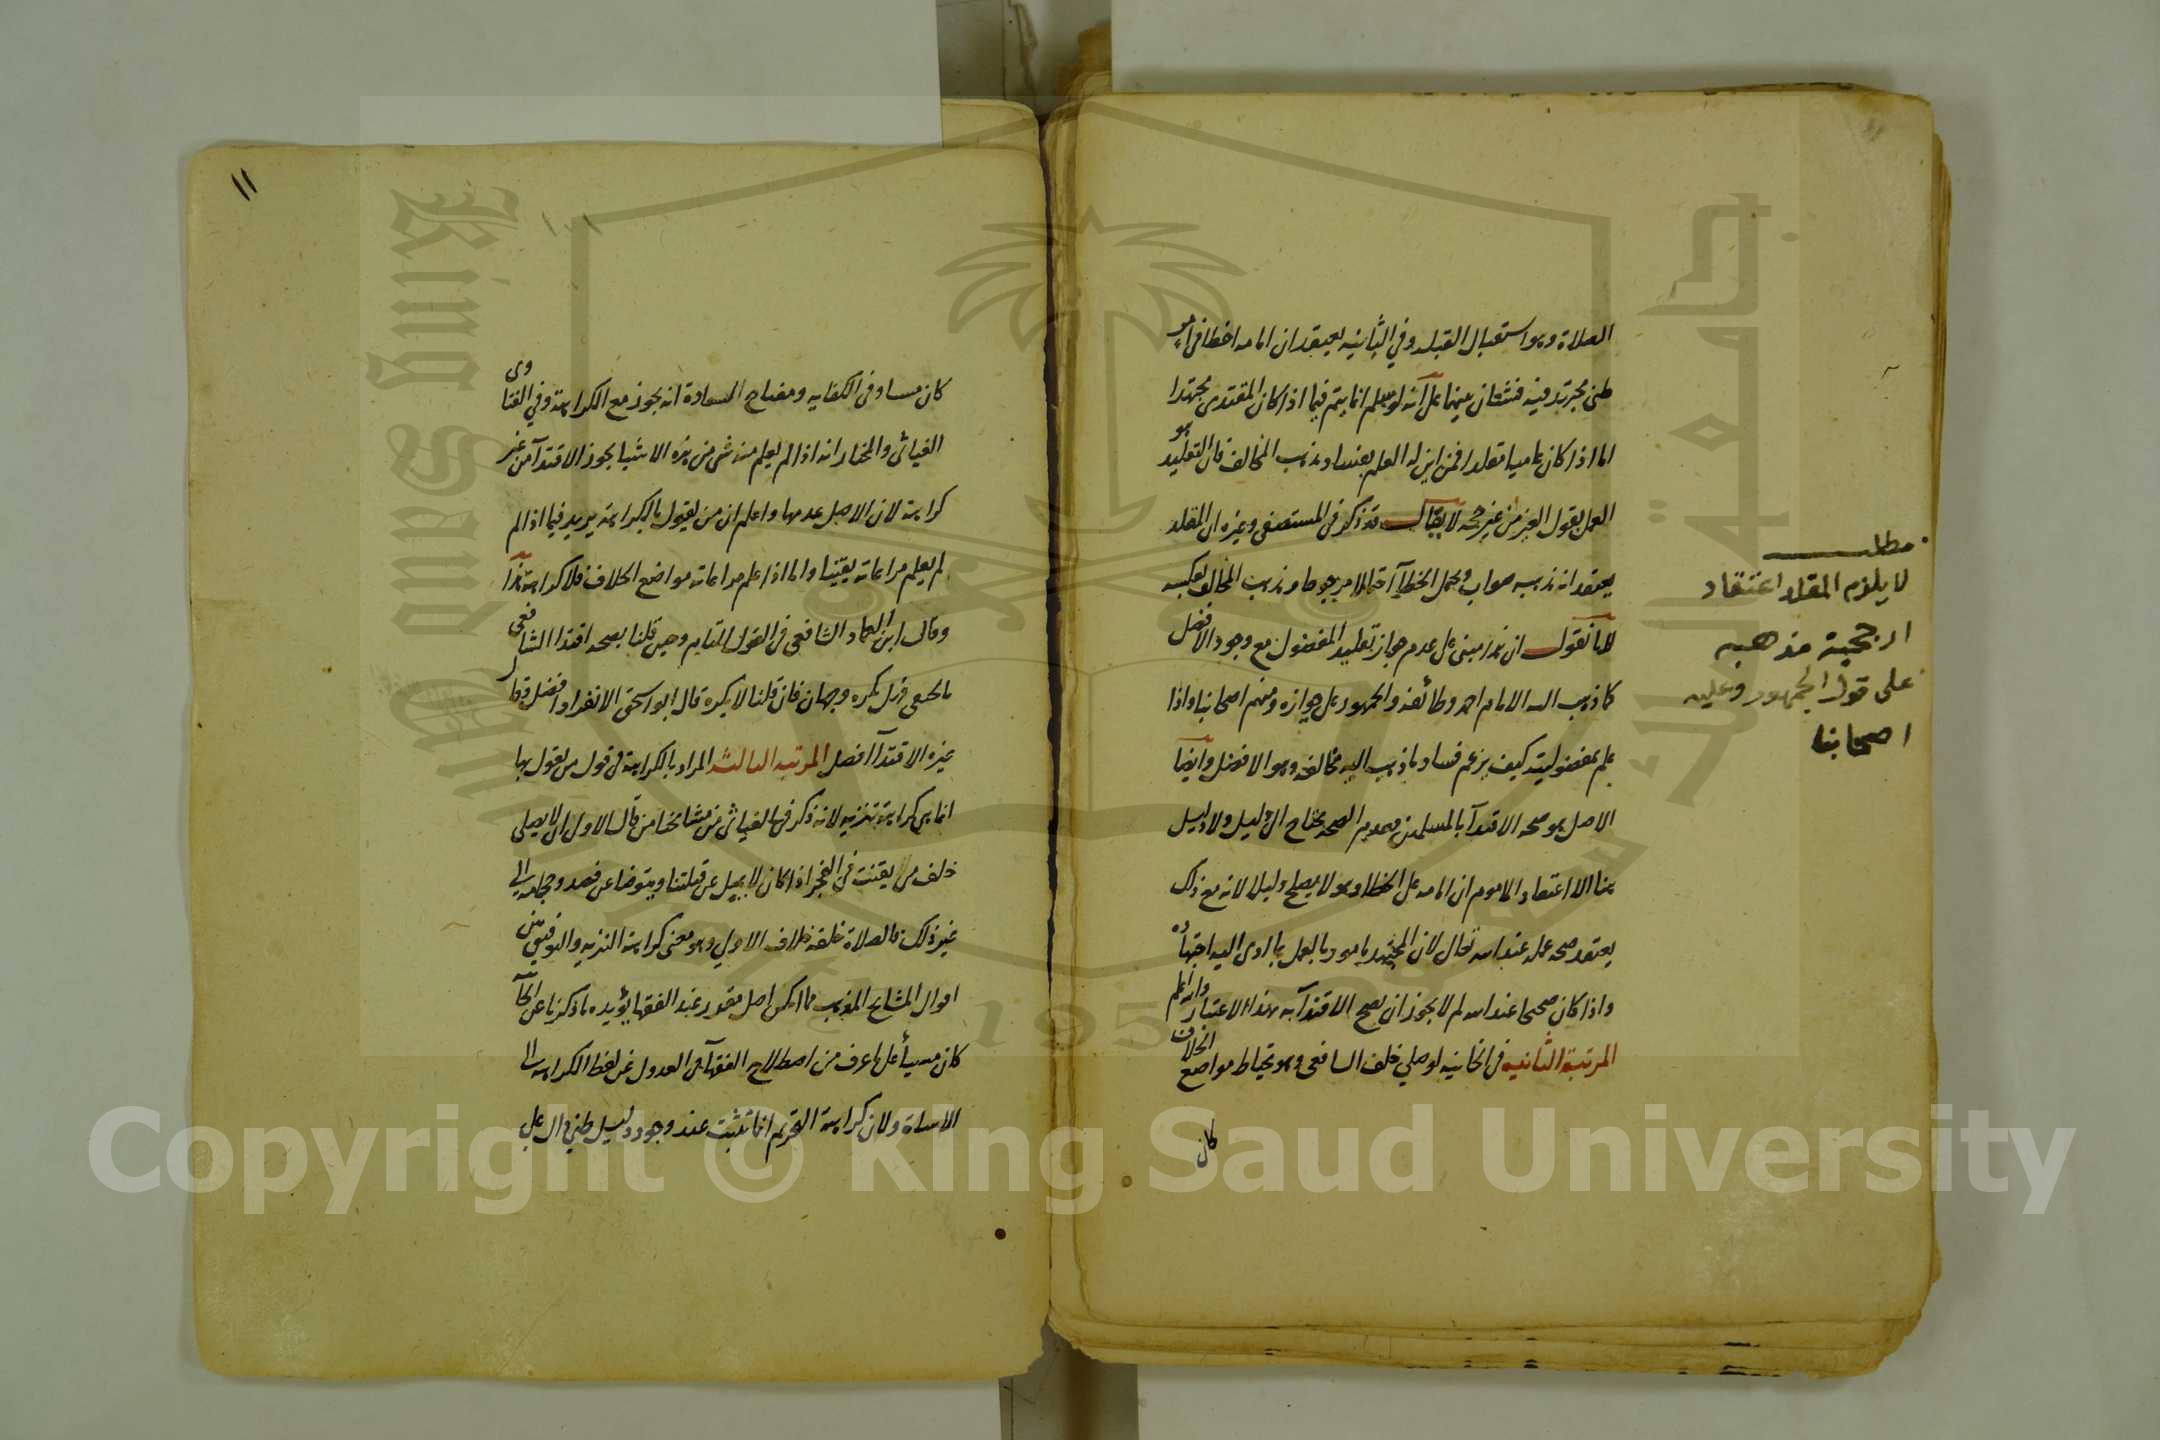 الصلاة وهو استقبال القبلة وفي الثانية يعتقد ان امامه اخطا في امر
ظني مجتهد فيه فشتان بينهما على انه لو سلم انما يتم فيما اذا كان المقتدى مجتهدا
اما اذا كان عاميا مقلدا فمن اين له العلم بفساد مذهب المخالف فان التقليد هو
العمل بقول الغير من غير حجة لا يقال قد ذكر في المستصفى وغيره ان المقلد
يعتقد ان مذهبه صواب ويحتمل الخطأ احتمالا مرجوحا ومذهب المخالف بعكسه
لانا نقول ان هذا مبني على عدم جواز تقليد المفضول مع وجود الافضل
كما ذهب اليه الامام احمد وطائفة والجمهور على جوازه ومنهم اصحابنا واذا
علم بمفضوليته كيف يزعم فساد ما ذهب اليه مخالفه وهو الافضل وايضا
الاصل هو صحة الاقتدآ بالمسلمين وعدم الصحة يحتاج الى دليل ولا دليل
هنا الا اعتقاد الماموم ان امامه على الخطا وهو لا يصلح دليلا لانه مع ذلك
يعتقد صحة عمله عند الله تعالى لان المجتهد مامور بالعمل بما ادى اليه اجتهاده
واذا كان صحيحا عند الله لم لا يجوز ان يصح الاقتدآ به بهذا الاعتبار والله اعلم
المرتبة الثانية في الخانية لو صلى خلف الشافعي وهو يحتاط مواضع الخلاف
كان
مطلب
لا يلزم المقلد اعتقاد
ارجحية مذهبه
على قول الجمهور وعليه
اصحابنا
١١
كان مساو في الكفاية ومفتاح السعادة انه يجوز مع الكراهة وفي الفتاوى
الغياثي والمختار انه اذا لم يعلم منه شي من هذه الاشيا يجوز الاقتدآ من غير
كراهة لان الاصل عدمها واعلم ان من يقول بالكراهة يريد فيما اذا لم
لم يعلم مراعاته يقينا واما اذا علم مراعاته مواضع الخلاف فلا كراهة هذا
وقال ابن العماد الشافعي في القول التام وحيث قلنا بصحة اقتدا الشافعي
بالحنفي فهل يكره وجهان فان قلنا لا يكره قال ابو اسحق الانفراد افضل وقال
غيره الاقتدآ افضل المرتبة الثالثة المراد بالكراهة في قول من يقول بها
انما هي كراهة تنزيه لانه ذكر في الغياثي من مشايخنا من قال الاولى ان لا يصلي
خلف من يقنت في الفجر اذا كان لا يميل عن قبلتنا ويتوضا عن فصد وحجامة الى
غير ذلك فالصلاة خلفه خلاف الاولى وهو معنى كراهة التنزيه والتوفيق بين
اقوال المشايخ المذهب ما امكن اصل مقرر عند الفقها يؤيده ما ذكرنا عن
كان مسيأ على ما عرف من اصطلاح الفقهآ في العدول عن لفظ الكراهة الى
الاساة ولان كراهة التحريم انما تثبت عند وجود دليل ظني دال على
Copyright © King Saud University
King Saud University
جامعة الملك سعود
195